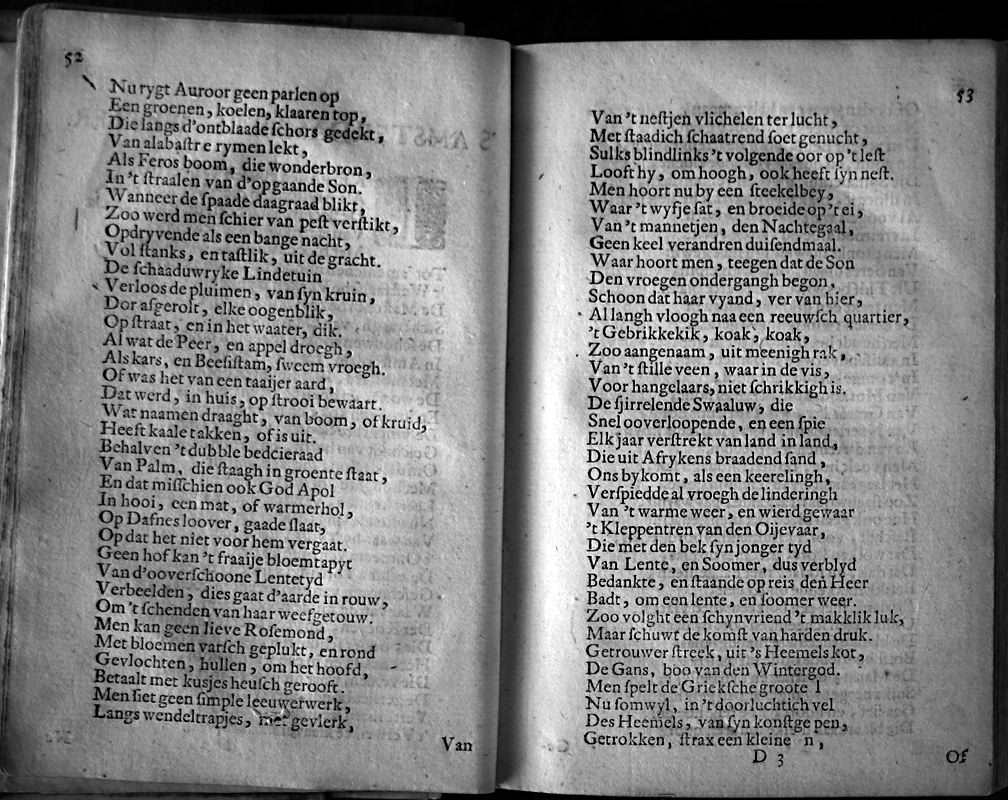 52
Nu rygt Auroor geen parlen op
Een groenen, koelen, klaaren top,
Die langs d'ontblaade ſchors gedekt,
Van alabaſtr e rymen lekt,
Als Feros boom, die wonderbron,
In 't ſtraalen van d'opgaande Son.
Wanneer de ſpaade daagraad blikt,
Zoo werd men ſchier van peſt verſtikt,
Opdryvende als een bange nacht,
Vol ſtanks, en taſtlik, uit de gracht.
De ſchaaduwryke Lindetuin
Verloos de pluimen, van ſyn kruin,
Dor afgerolt, elke oogenblik,
Op ſtraat, en in het waater, dik.
Al wat de Peer, en appel droegh,
Als kars, en Beeſiſtam, ſweem vroegh.
Of was het van een taaijer aard,
Dat werd, in huis, op ſtrooi bewaart.
Wat naamen draaght, van boom, of kruid,
Heeft kaale takken, of is uit.
Behalven 't dubble bedcieraad
Van Palm, die ſtaagh in groente ſtaat,
En dat miſſchien ook God Apol
In hooi, een mat, of warmer hol,
Op Dafnes loover, gaade ſlaat,
Op dat het niet voor hem vergaat.
Geen hof kan 't fraaije bloemtapyt
Van d'ooverſchoone Lentetyd
Verbeelden, dies gaat d'aarde in rouw,
Om 't ſchenden van haar weefgetouw.
Men kan geen lieve Roſemond,
Met bloemen varſch geplukt, en rond
Gevlochten, hullen, om het hoofd,
Betaalt met kusjes heuſch gerooft.
Men ſiet geen ſimple leeuwerwerk,
Langs wendeltrapjes, met gevlerk,
Van
53
Van 't neſtjen vlichelen ter lucht,
Met ſtaadich ſchaatrend ſoet genucht,
Sulks blindlinks 't volgende oor op 't leſt
Looft hy, om hoogh, ook heeft ſyn neſt.
Men hoort nu by een ſteekelbey,
Waar 't wyfje ſat, en broeide op 't ei,
Van 't mannetjen, den Nachtegaal,
Geen keel verandren duiſendmaal.
Waar hoort men, teegen dat de Son
Den vroegen ondergangh begon,
Schoon dat haar vyand, ver van hier,
Al langh vloogh naa een reeuwſch quartier,
't Gebrikkekik, koak, koak,
Zoo aangenaam, uit meenigh rak,
Van 't ſtille veen, waar in de vis,
Voor hangelaars, niet ſchrikkigh is.
De ſjirrelende Swaaluw, die
Snel ooverloopende, en een ſpie
Elk jaar verſtrekt van land in land,
Die uit Afrykens braadend ſand,
Ons bykomt, als een keerelingh,
Verſpiedde al vroegh de linderingh
Van 't warme weer, en wierd gewaar
't Kleppentren van den Oijevaar,
Die met den bek ſyn jonger tyd
Van Lente, en Soomer, dus verblyd
Bedankte, en ſtaande op reis den Heer
Badt, om een lente, en ſoomer weer.
Zoo volght een ſchynvriend 't makklik luk,
Maar ſchuwt de komſt van harden druk.
Getrouwer ſtreek, uit 's Heemels kot,
De Gans, boo van den Wintergod.
Men ſpelt de Griekſche groote l
Nu ſomwyl, in 't doorluchtich vel
Des Heemels, van ſyn konſtge pen,
Getrokken, ſtrax een kleine n,
D 3
Of